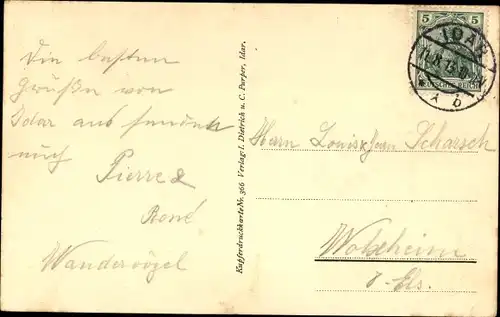 Die besten
Grüße von
Idar aus sendet
euch
Pierre &
René
Wandervögel
Kupferdruckkarte Nr. 366 Verlag: I. Dietrich u. C. Purper, Idar.
5 5
DEUTSCHES REICH
IDAR
* b
Herrn Louis & Jean Scharsch
Wolxheim
U.-Els.